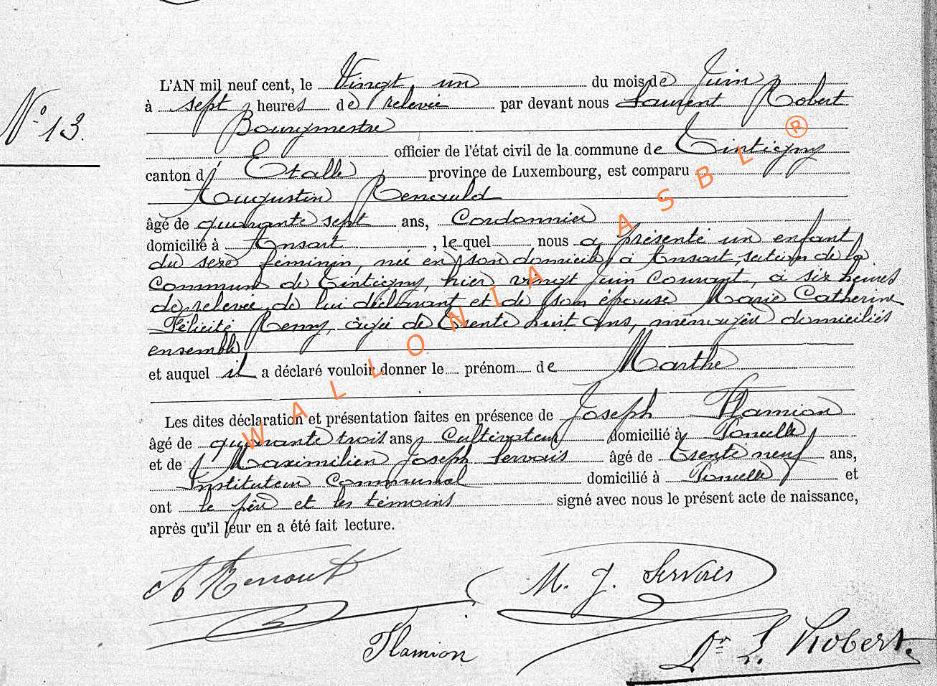 N° 13.
L'AN mil neuf cent, le Vingt un du mois de Juin
à sept heures de relevée par devant nous Laurent Robert
Bourgmestre
officier de l'état civil de la commune de Tintigny
canton d'Etalle province de Luxembourg, est comparu
Augustin Renauld
âgé de quarante sept ans, Cordonnier
domicilié à Ansart, lequel nous a présenté un enfant
du sexe féminin, née en son domicile à Ansart, section de la
commune de Tintigny, hier vingt juin courant, à six heures
de relevée, de lui déclarant et de son épouse Marie Catherine
Félicité Remy, âgée de trente huit ans, ménagère domiciliés
ensemble
et auquel il a déclaré vouloir donner le prénom de Marthe
Les dites déclaration et présentation faites en présence de Joseph Flamion
âgé de quarante trois ans, Cultivateur domicilié à Poncelle
et de Maximilien Joseph Servais âgé de trente neuf ans,
Instituteur Communal domicilié à Poncelle et
ont le père et les témoins signé avec nous le présent acte de naissance,
après qu'il leur en a été fait lecture.
WALLONIA ASBL ®
A Renault M. J. Servais
Flamion Dr L. Robert.